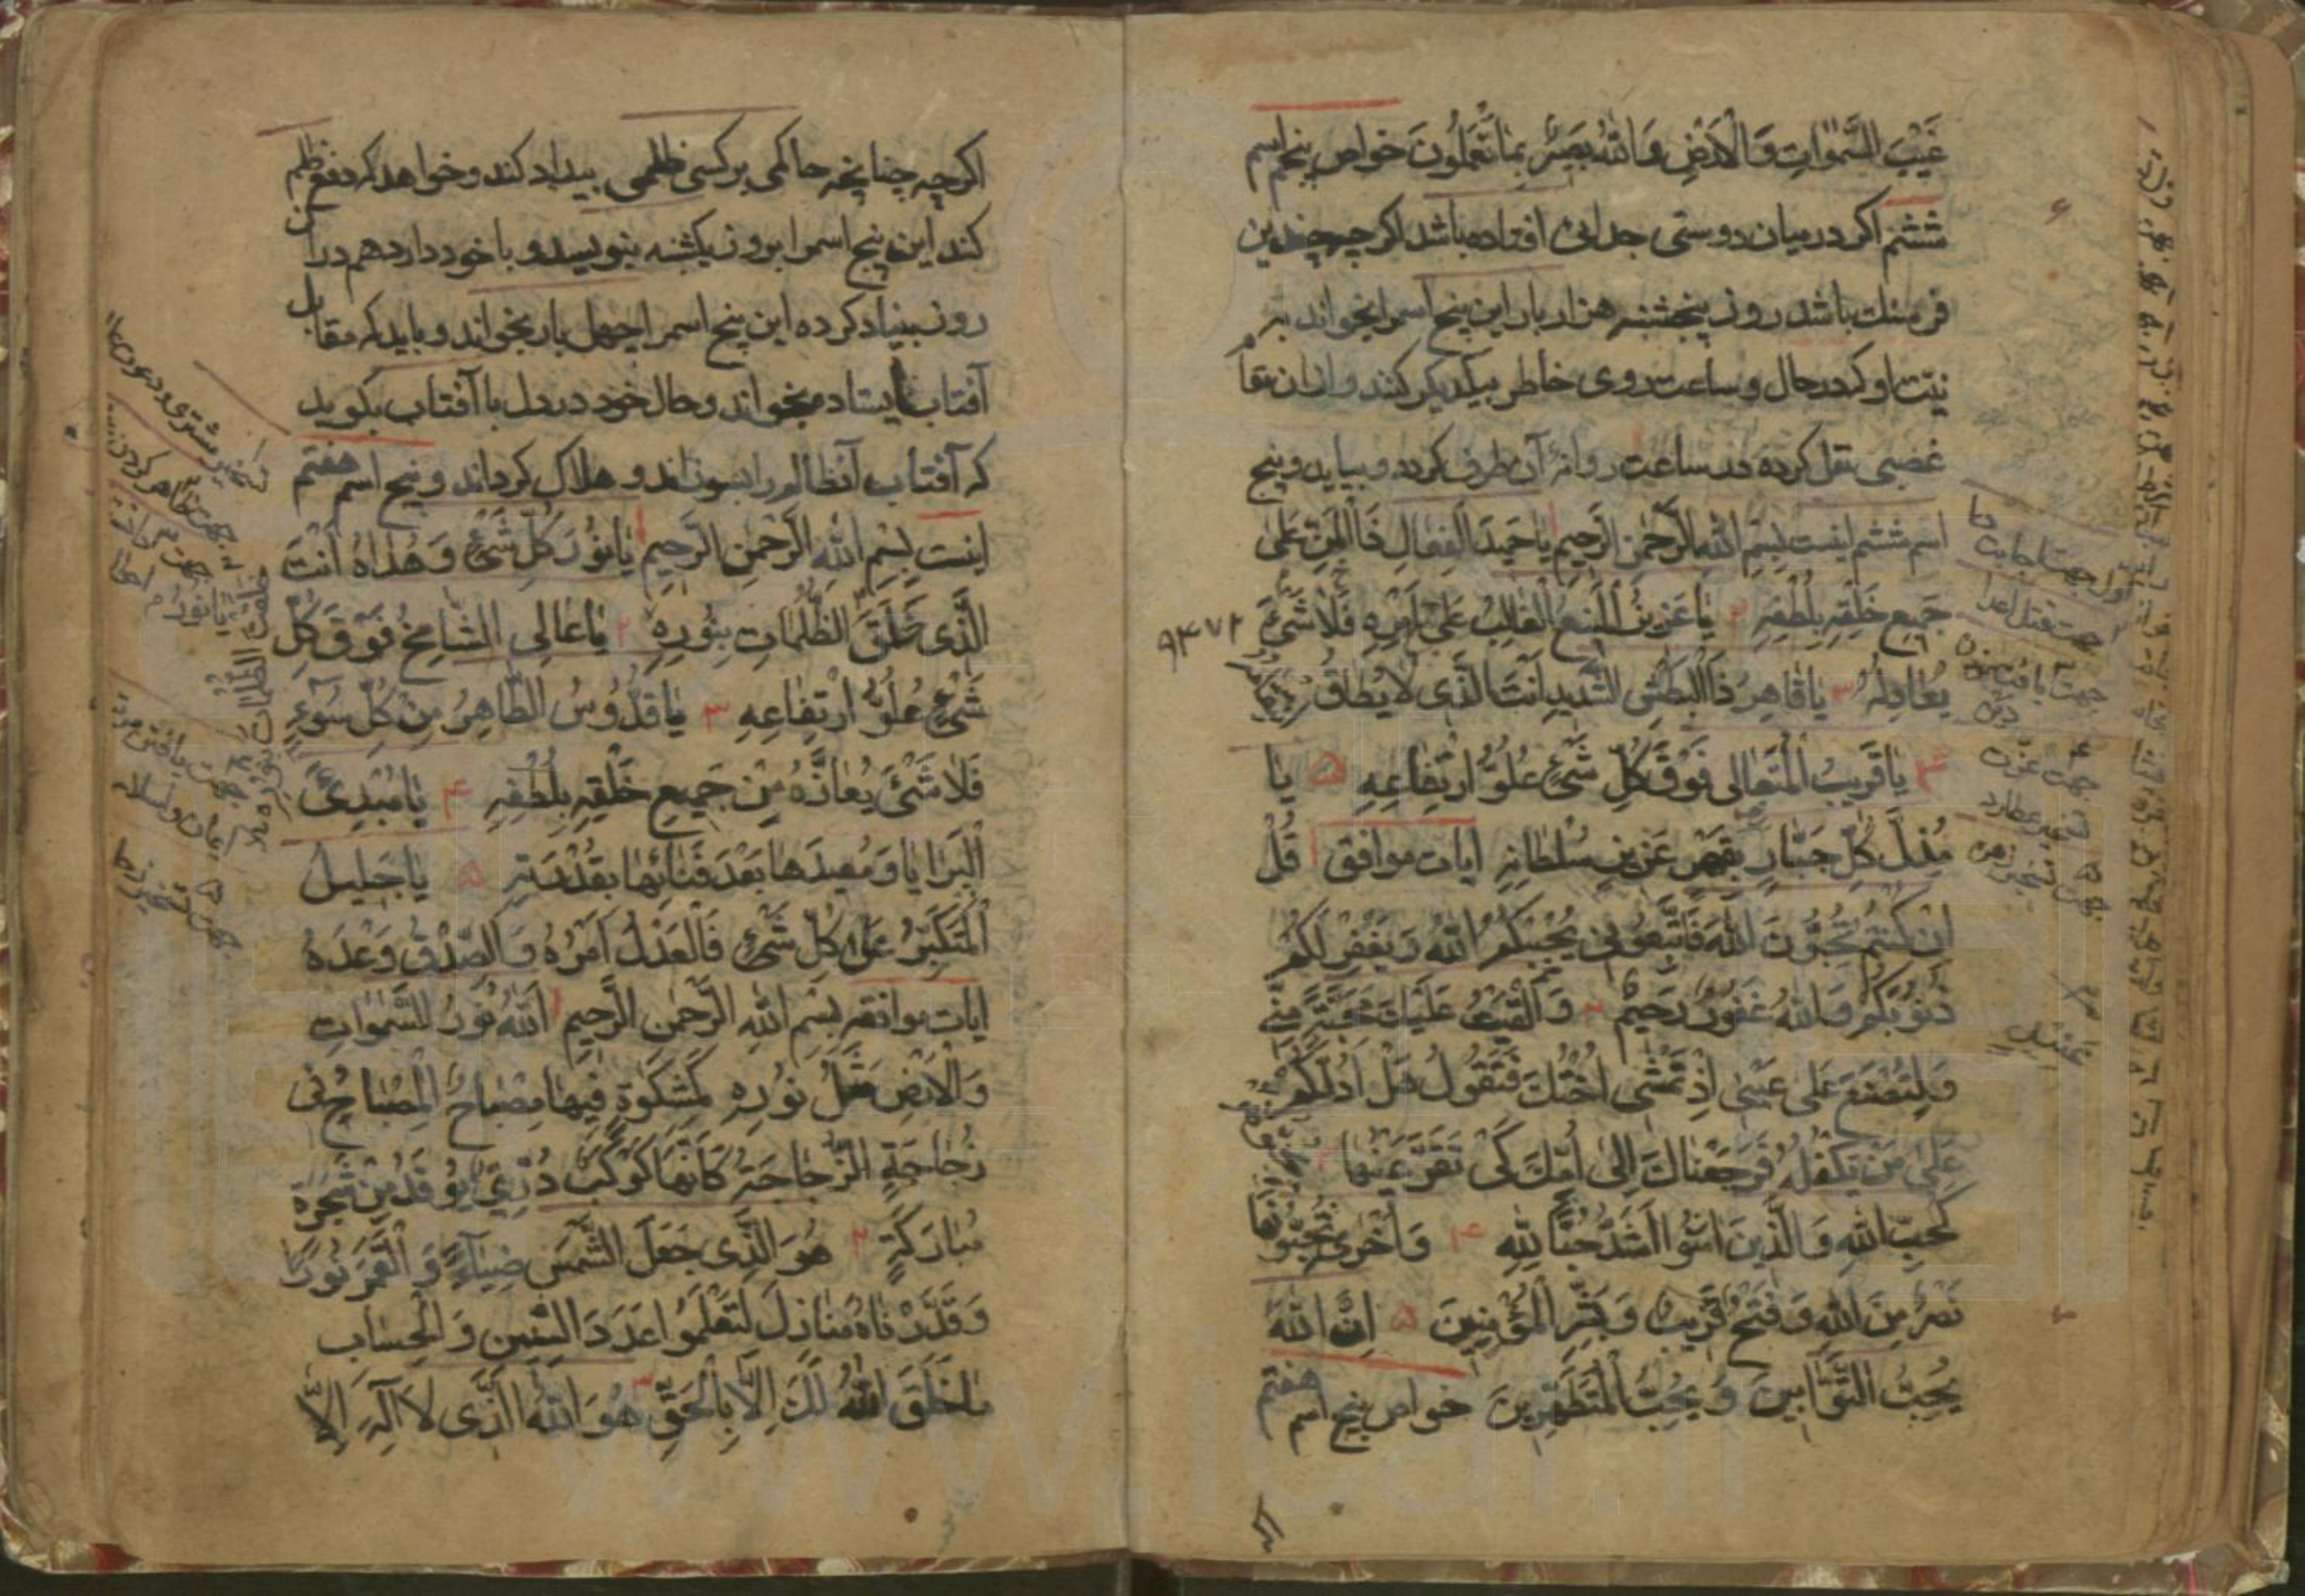 غَيْبَ السَّمٰوَاتِ وَالْاَرْضِ وَاللّٰهُ بَصِيرٌ بِمَا تَعْمَلُونَ خواص پنج اسم
ششم اکر در میان دوستی جدائی افتاده باشد اکر چه چندین
فرسنك باشد روز پنجشنبه هزار بار این پنج اسم را بخواند به
نیت او که در حال و ساعت روی خاطر بیکدیکر کنند و از ان مقا
غضبی نقل کرده در ساعت روانهٔ آن طرف کردد و بیاید و پنج
اسم ششم اینست بِسْمِ اللّٰهِ الرَّحْمٰنِ الرَّحِيمِ يَا حَمِيدَ الْفِعَالِ ذَا الْمَنِّ عَلٰى
جَمِيعِ خَلْقِهِ بِلُطْفِهِ ۲ يَا عَزِيزُ الْمَنِيعُ الْغَالِبُ عَلٰى اَمْرِهِ فَلَا شَىْءَ
يُعَادِلُهُ ۳ يَا قَاهِرُ ذَا الْبَطْشِ الشَّدِيدِ اَنْتَ الَّذِى لَا يُطَاقُ
۴ يَا قَرِيبُ الْمُتَعَالِى فَوْقَ كُلِّ شَىْءٍ عُلُوُّ ارْتِفَاعِهِ ۵ يَا
مُذِلَّ كُلِّ جَبَّارٍ بِقَهْرِ عَزِيزِ سُلْطَانِهِ ایات موافق ۱ قُلْ
اِنْ كُنْتُمْ تُحِبُّونَ اللّٰهَ فَاتَّبِعُونِى يُحْبِبْكُمُ اللّٰهُ وَيَغْفِرْ لَكُمْ
ذُنُوبَكُمْ وَاللّٰهُ غَفُورٌ رَحِيمٌ ۲ وَاَلْقَيْتُ عَلَيْكَ مَحَبَّةً مِنِّى
وَلِتُصْنَعَ عَلٰى عَيْنِى اِذْ تَمْشِى اُخْتُكَ فَتَقُولُ هَلْ اَدُلُّكُمْ
عَلٰى مَنْ يَكْفُلُهُ فَرَجَعْنَاكَ اِلٰى اُمِّكَ كَىْ تَقَرَّ عَيْنُهَا ۳
كَحُبِّ اللّٰهِ وَالَّذِينَ اٰمَنُوا اَشَدُّ حُبًّا لِلّٰهِ ۴ وَاُخْرٰى تُحِبُّونَهَا
نَصْرٌ مِنَ اللّٰهِ وَفَتْحٌ قَرِيبٌ وَبَشِّرِ الْمُؤْمِنِينَ ۵ اِنَّ اللّٰهَ
يُحِبُّ التَّوَّابِينَ وَيُحِبُّ الْمُتَطَهِّرِينَ خواص پنج اسم هفتم
۹۴۷۲
جهت قتل اعدا
اکرچه چنانچه حاکمی بر کسی ظلمی بیداد کند و خواهد که دفع ظلم
کند این پنج اسم را بروز یکشنبه بنویسد و با خود دارد هم در آن
روز بنیاد کرده این پنج اسم را چهل بار بخواند و باید که مقابل
آفتاب ایستاده بخواند و حال خود در دل با آفتاب بکوید
که آفتاب آنظالم را بسوزاند و هلاک کرداند و پنج اسم هفتم
اینست بِسْمِ اللّٰهِ الرَّحْمٰنِ الرَّحِيمِ ۱ يَا نُورَ كُلِّ شَىْءٍ وَهُدَاهُ اَنْتَ
الَّذِى خَلَقَ الظُّلُمَاتِ بِنُورِهِ ۲ يَا عَالِى الشَّامِخُ فَوْقَ كُلِّ
شَىْءٍ عُلُوُّ ارْتِفَاعِهِ ۳ يَا قُدُّوسُ الطَّاهِرُ مِنْ كُلِّ سُوۤءٍ
فَلَا شَىْءَ يُعَازُّهُ مِنْ جَمِيعِ خَلْقِهِ بِلُطْفِهِ ۴ يَا مُبْدِئَ
الْبَرَايَا وَمُعِيدَهَا بَعْدَ فَنَائِهَا بِقُدْرَتِهِ ۵ يَا جَلِيلُ
الْمُتَكَبِّرُ عَلٰى كُلِّ شَىْءٍ فَالْعَدْلُ اَمْرُهُ وَالصِّدْقُ وَعْدَهُ
ایات موافقه بِسْمِ اللّٰهِ الرَّحْمٰنِ الرَّحِيمِ ۱ اَللّٰهُ نُورُ السَّمٰوَاتِ
وَالْاَرْضِ مَثَلُ نُورِهِ كَمِشْكٰوةٍ فِيهَا مِصْبَاحٌ الْمِصْبَاحُ فِى
زُجَاجَةٍ الزُّجَاجَةُ كَاَنَّهَا كَوْكَبٌ دُرِّىٌّ يُوقَدُ مِنْ شَجَرَةٍ
مُبَارَكَةٍ ۲ هُوَ الَّذِى جَعَلَ الشَّمْسَ ضِيَاۤءً وَالْقَمَرَ نُورًا
وَقَدَّرْنَاهُ مَنَازِلَ لِتَعْلَمُوا عَدَدَ السِّنِينَ وَالْحِسَابَ
مَا خَلَقَ اللّٰهُ ذٰلِكَ اِلَّا بِالْحَقِّ ۳ هُوَ اللّٰهُ الَّذِى لَا اِلٰهَ اِلَّا